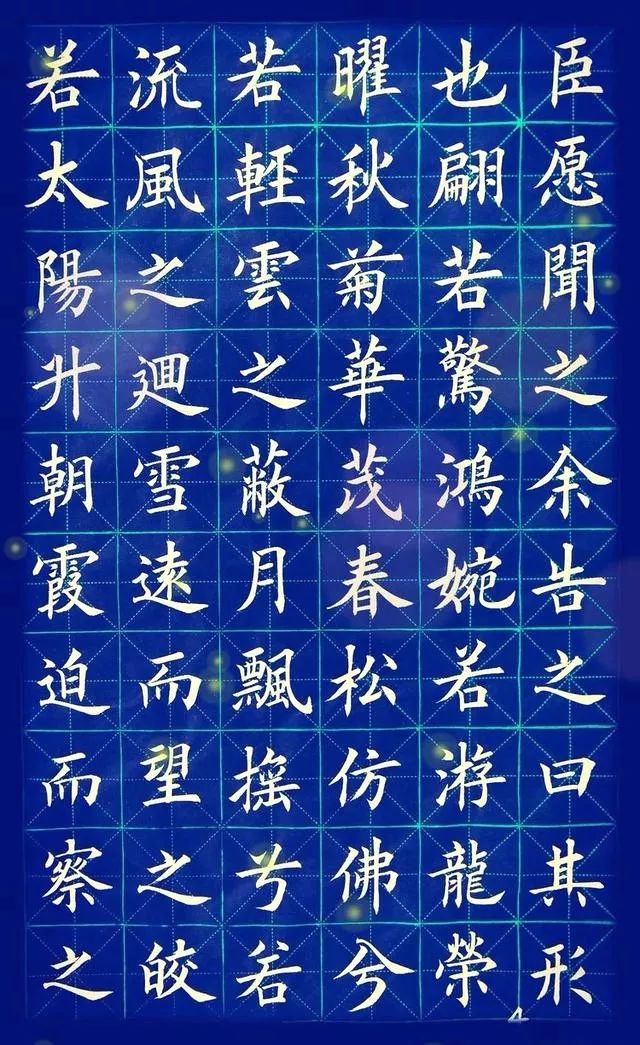 臣愿聞之余告之曰其形
也翩若驚鴻婉若游龍榮
曜秋菊華茂春松仿佛兮
若輕雲之蔽月飄搖兮若
流風之迴雪遠而望之皎
若太陽升朝霞迫而察之